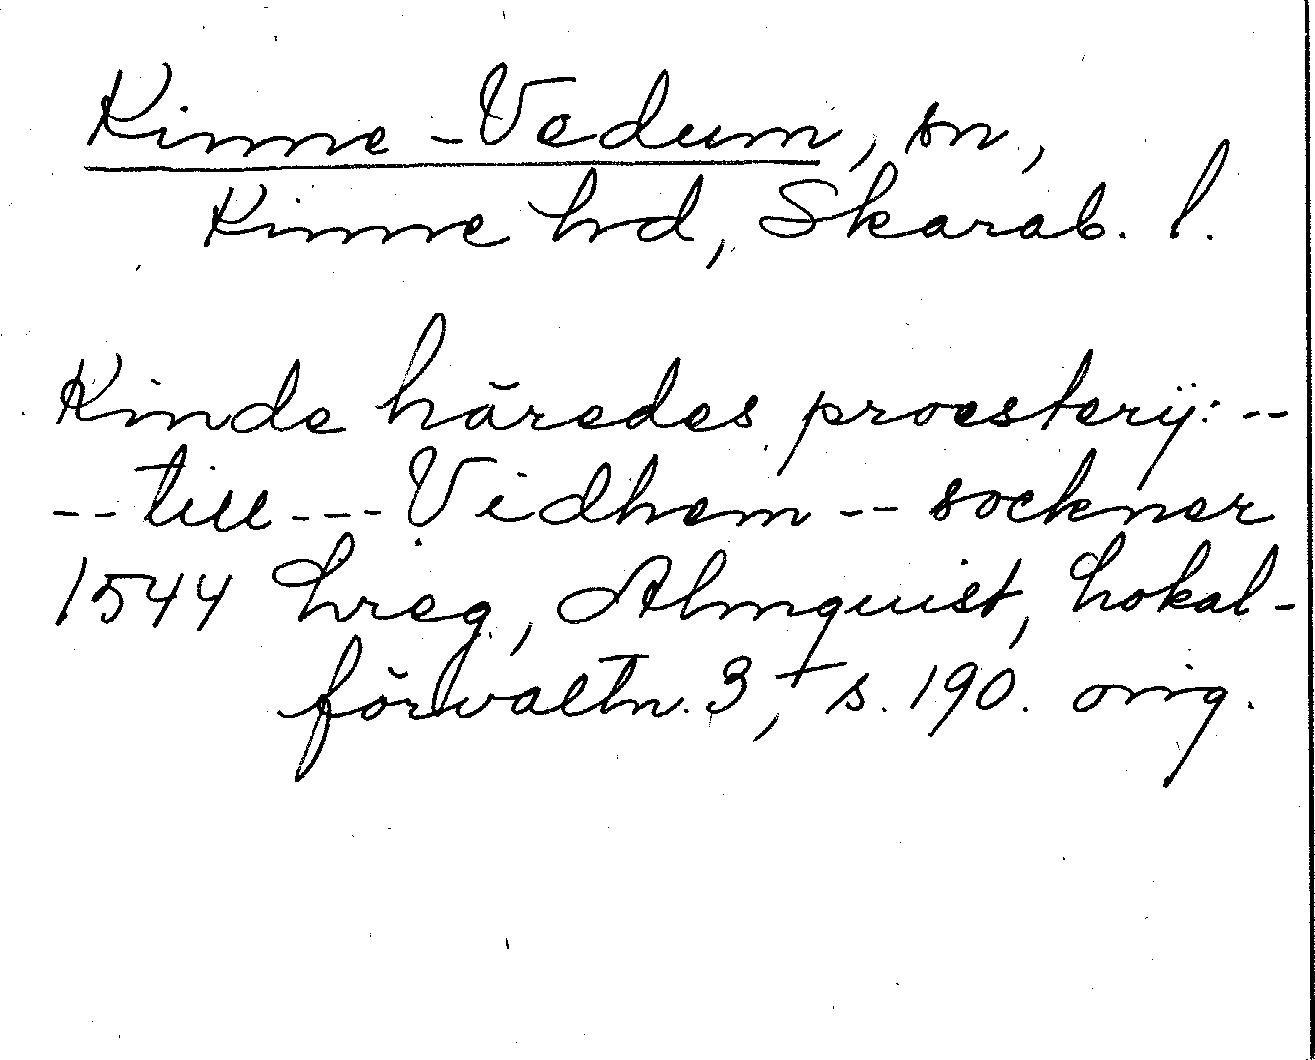 Kinne-Vedum, sn,
Kinne hd, Skarab. l.
Kinde häredes proesterij: --
-- till --- Vidhem -- sockner
1544 hreg, Almquist, Lokal-
förvaltn. 3, s. 190. orig.